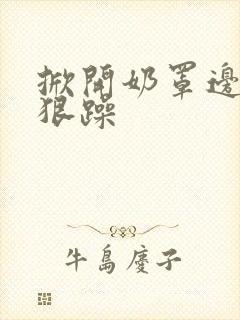 掀開奶罩邊
狠躁
牛島慶子